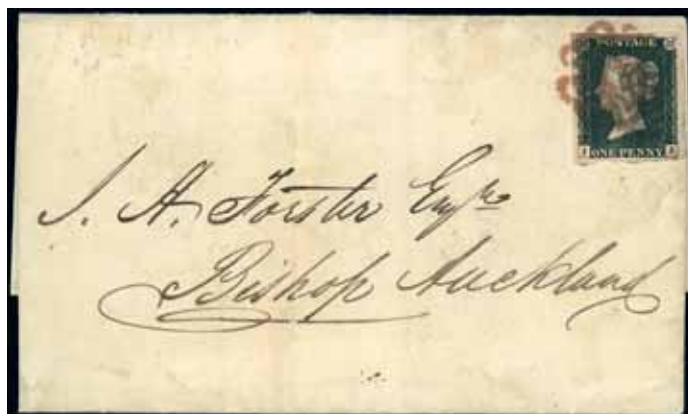 POSTAGE
ONE PENNY
J. A. Forster Esqre
Bishop Auckland